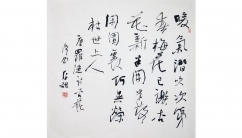 暖氣潛催次第
春梅花已謝杏
花新半開半落
閑園裏何異榮
枯世上人
唐羅隱詩杏花